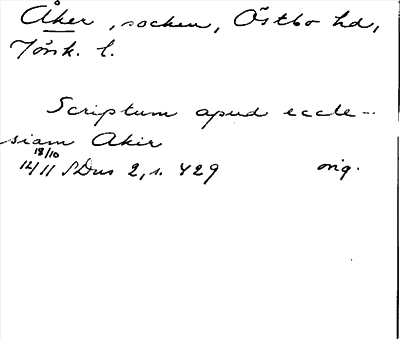 Åker, socken, Östbo hd,
Jönk. l.
Scriptum apud eccle-
siam Akir
18/10
1411 SDns 2, s. 429 orig.